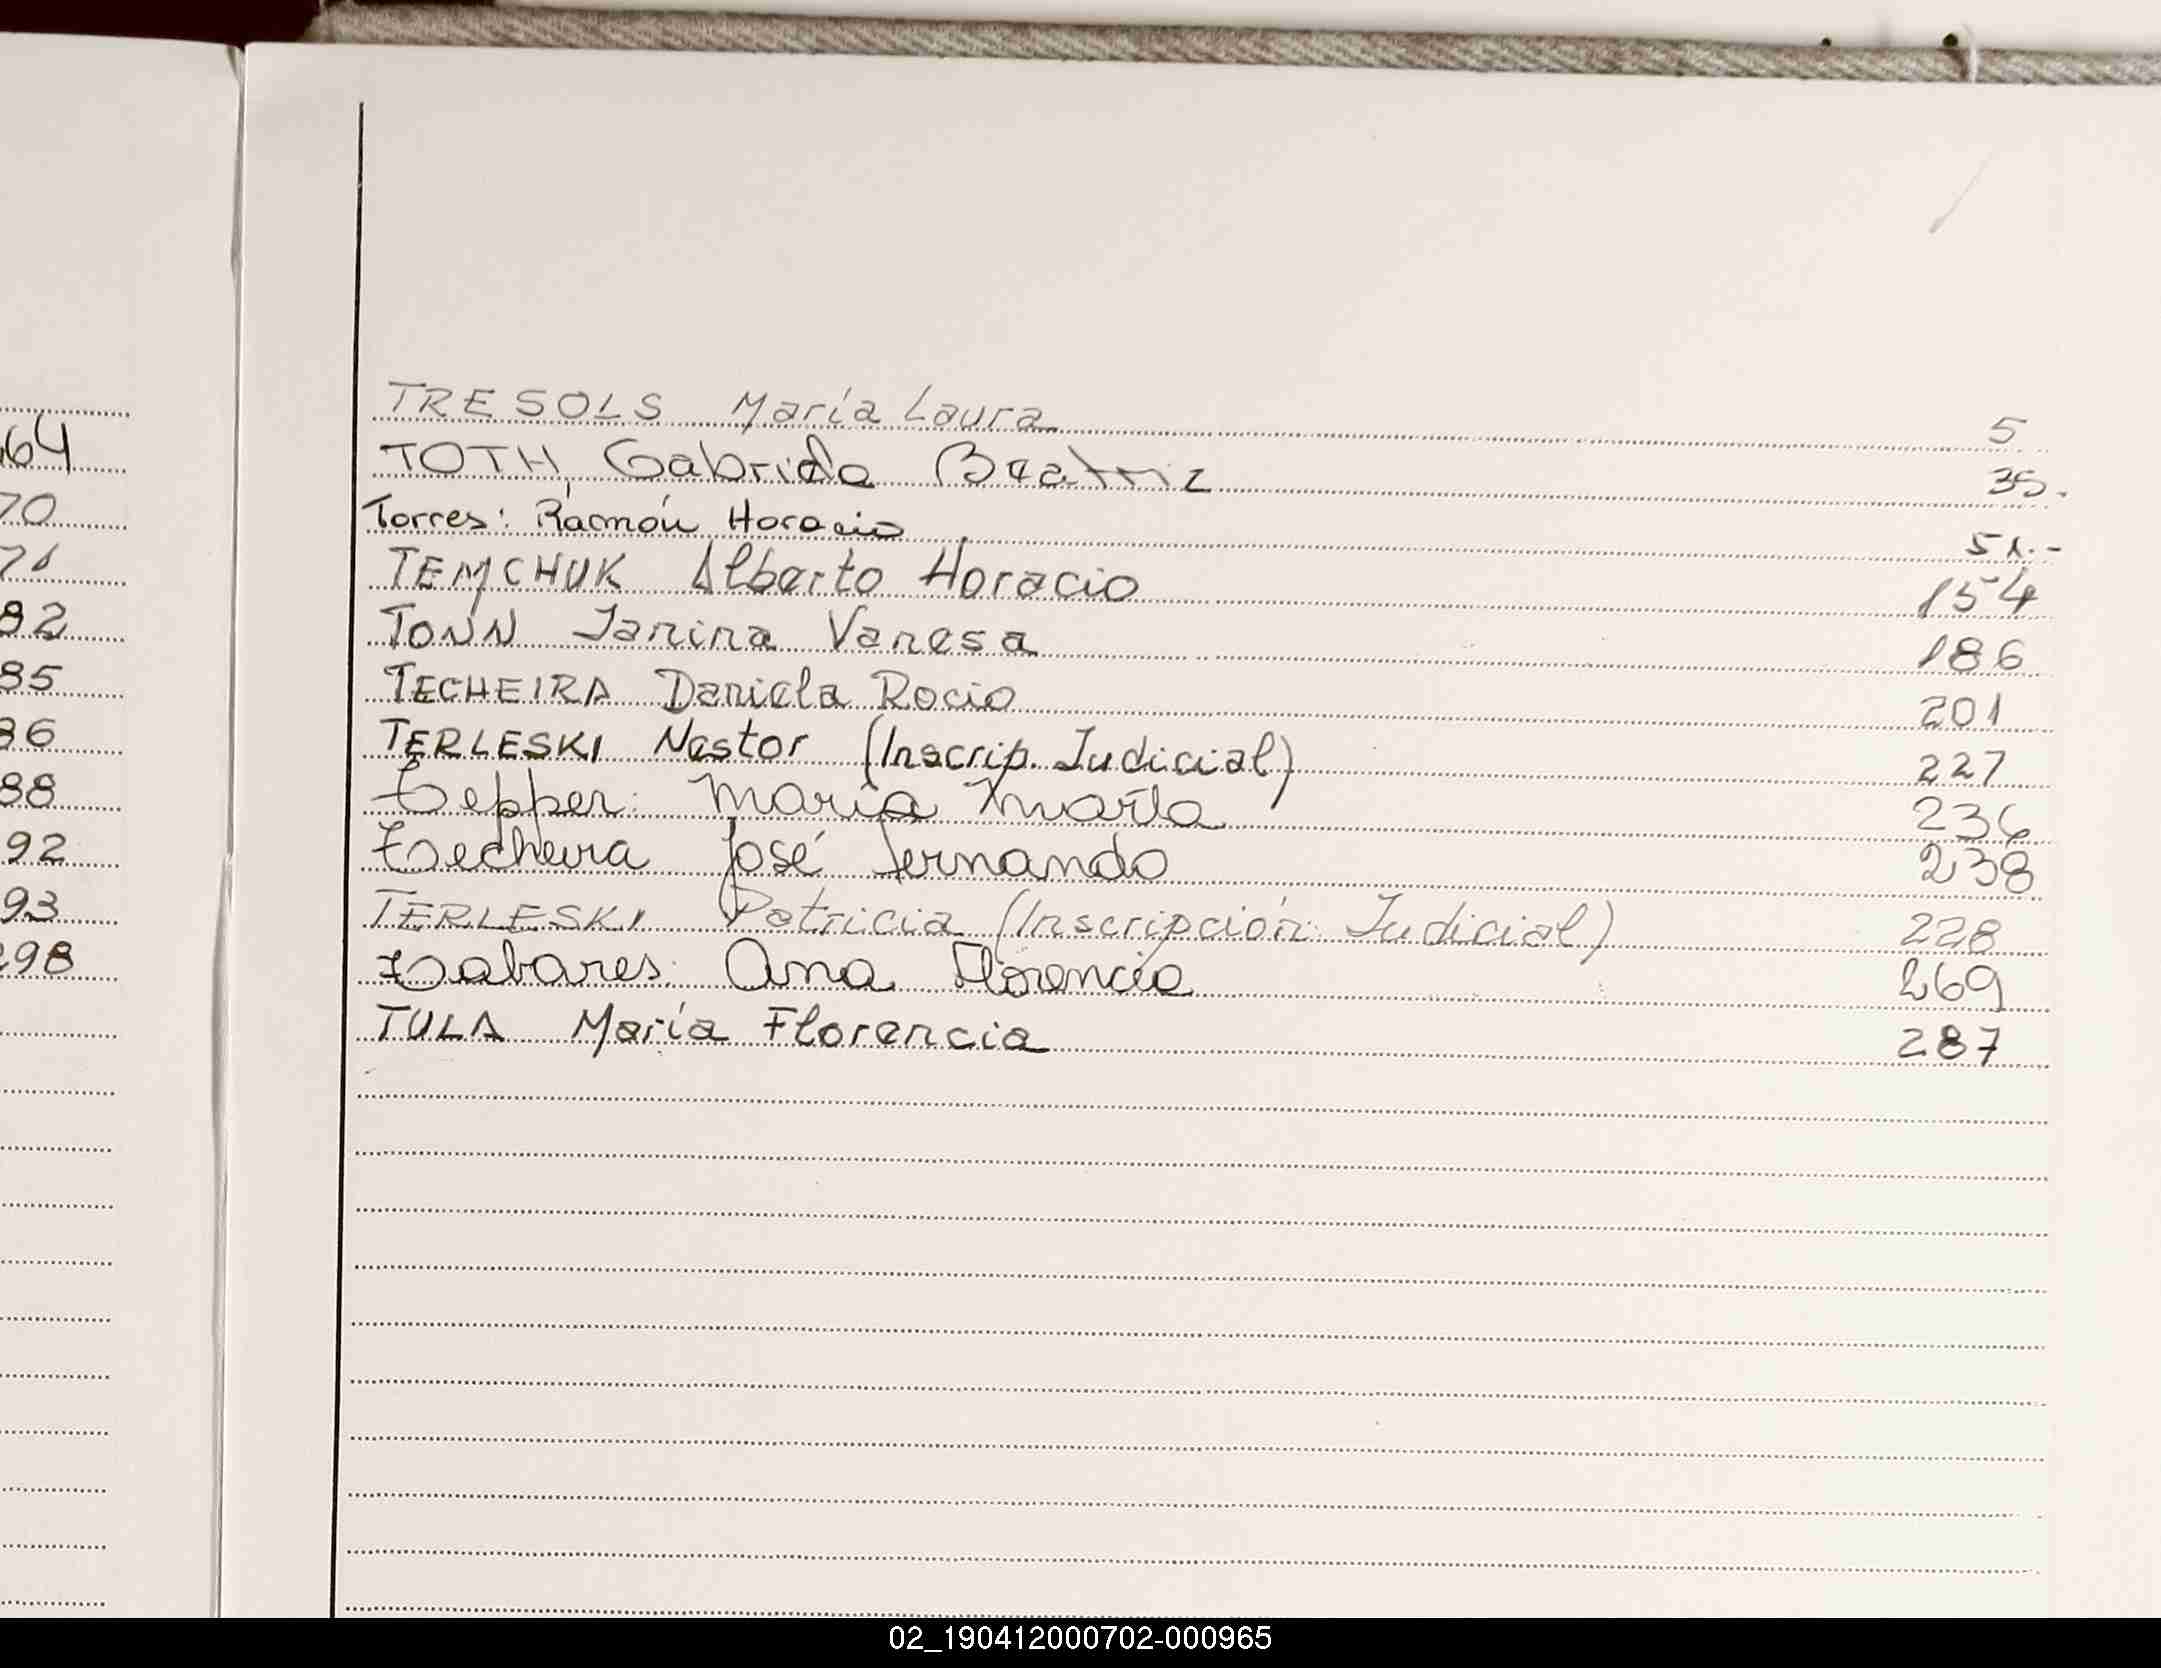 64
70
71
82
85
86
88
92
93
298
TRESOLS María Laura 5
TOTH, Gabriela Beatriz 35.
Torres: Ramón Horacio 51.-
TEMCHUK Alberto Horacio 154
TONN Janina Vanesa 186
TECHEIRA Daniela Rocio 201
TERLESKI Nestor (Inscrip. Judicial) 227
Tepper: María Marta 236
Techeira José Fernando 238
TERLESKI Patricia (Inscripción Judicial) 228
Tabares: Ana Florencia 269
TULA María Florencia 287
02_190412000702-000965